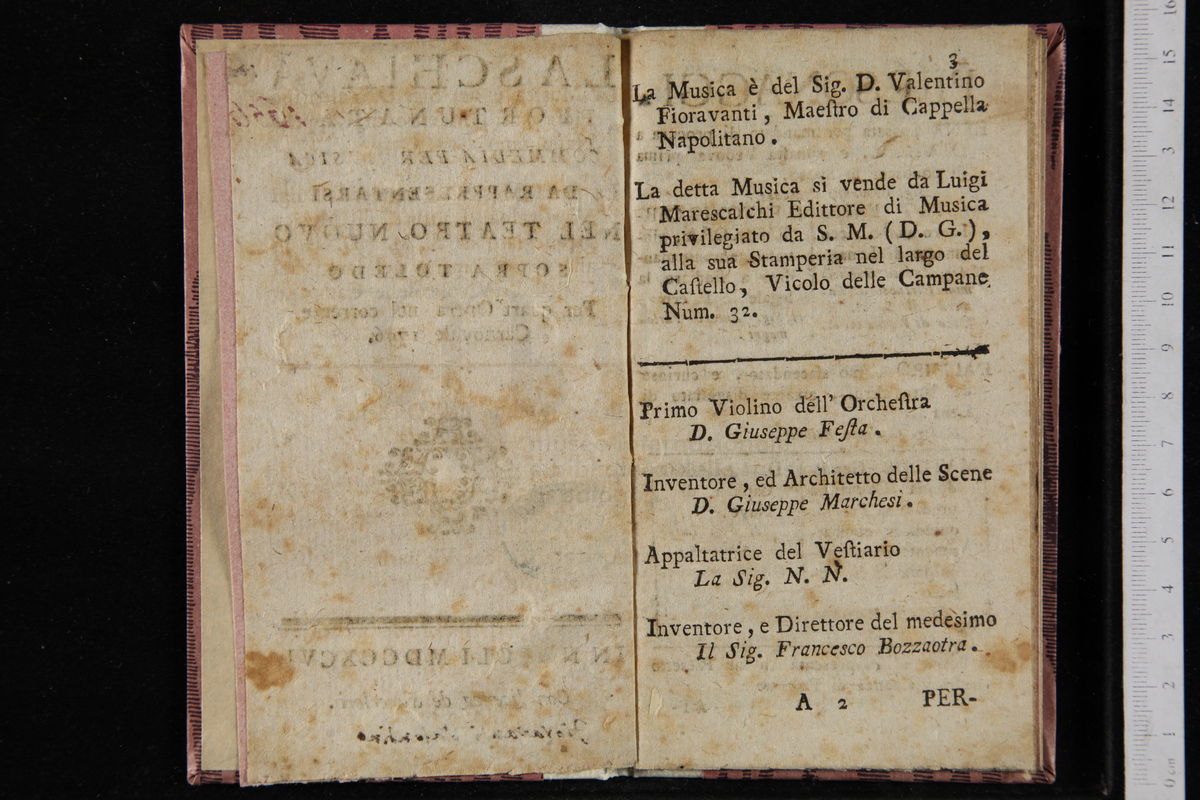 3
La Musica è del Sig. D. Valentino
Fioravanti, Maeſtro di Cappella
Napolitano.
La detta Musica si vende da Luigi
Marescalchi Edittore di Musica
privilegiato da S. M. (D. G.),
alla sua Stamperia nel largo del
Caſtello, Vicolo delle Campane
Num. 32.
Primo Violino dell' Orcheſtra
D. Giuseppe Feſta.
Inventore, ed Architetto delle Scene
D. Giuseppe Marchesi.
Appaltatrice del Veſtiario
La Sig. N. N.
Inventore, e Direttore del medesimo
Il Sig. Francesco Bozzaotra.
A 2 PER-